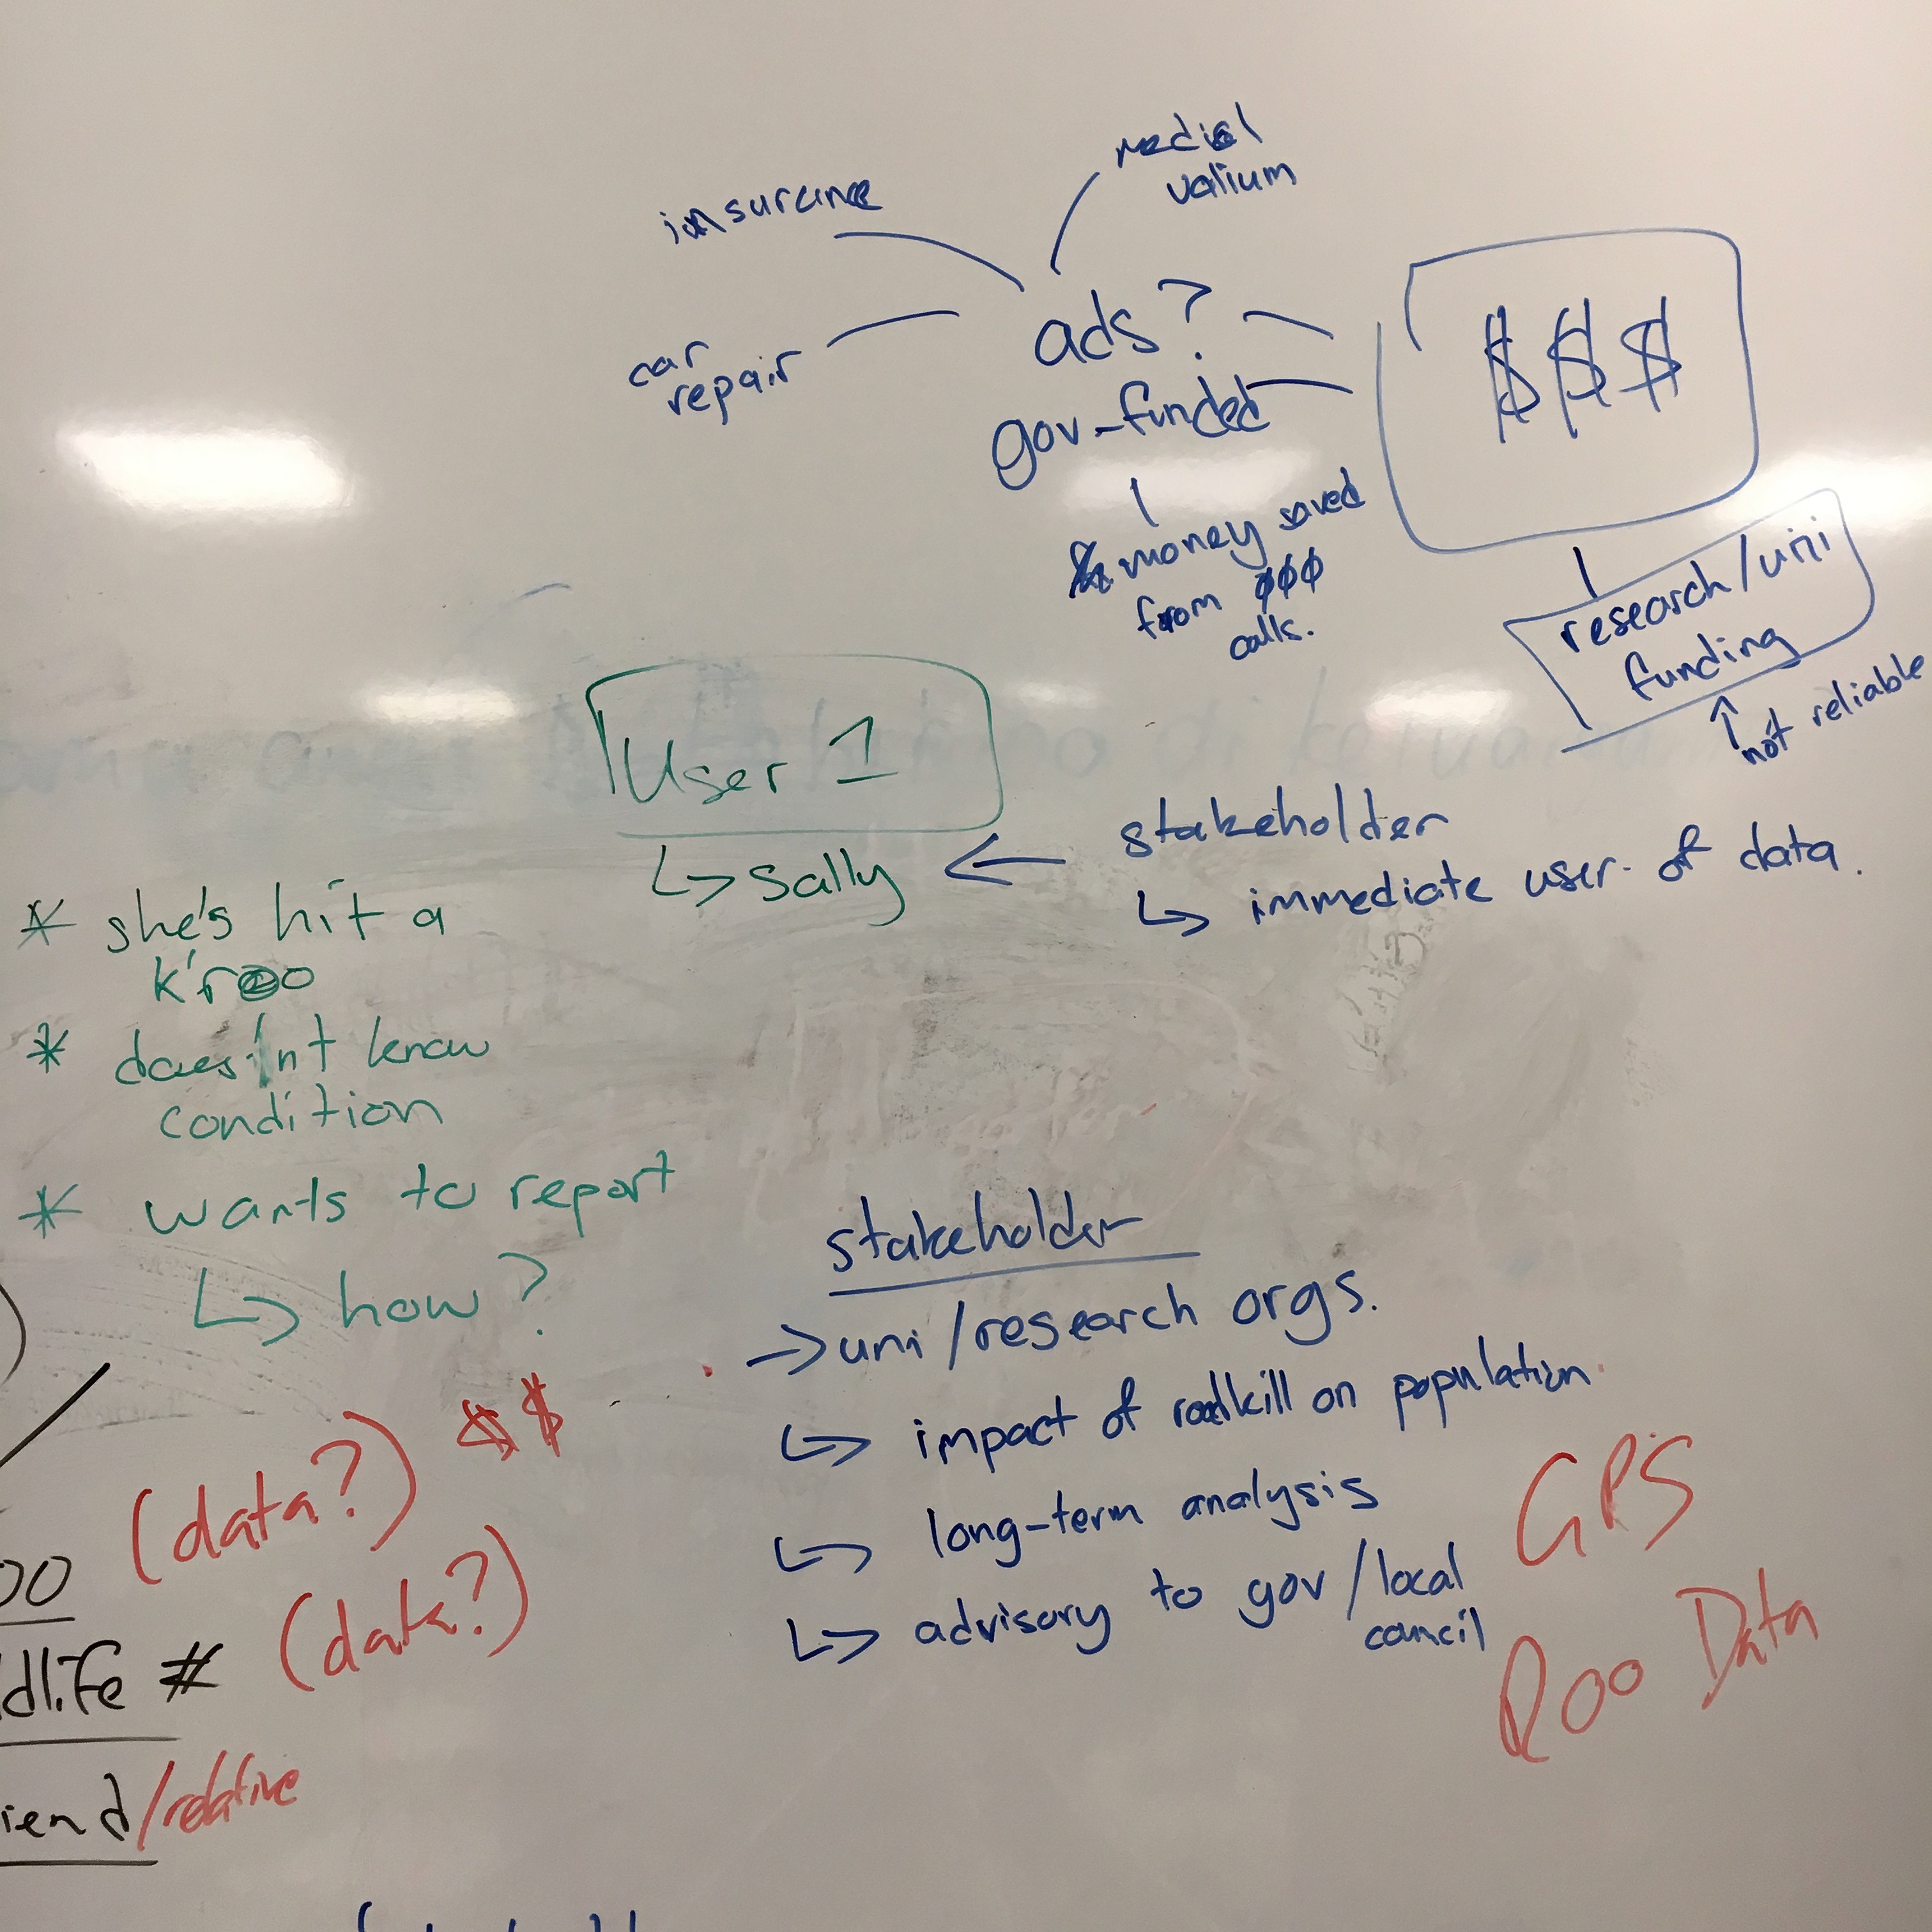 insurance
valium
car
repair
ads?
gov-funded
$$$
money saved
from ØØØ
calls.
research/uni
funding
not reliable
User 1
↳ Sally
←
stakeholder
↳ immediate user of data.
* she's hit a
k'roo
* does'nt know
condition
* wants to report
↳ how?
(data?) $$
(data?)
dlife #
iend/relative
stakeholder
→ uni/research orgs.
↳ impact of roadkill on population
↳ long-term analysis
↳ advisory to gov/local
council
GPS
Roo Data